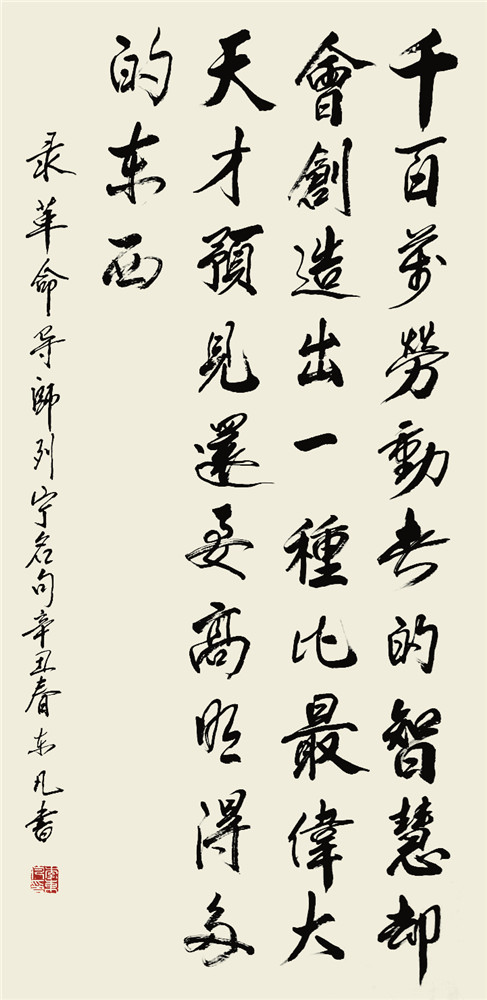 千百萬勞動者的智慧却
會創造出一種比最偉大
天才預見還要高明得多
的东西
录革命导師列宁名句辛丑春东凡書